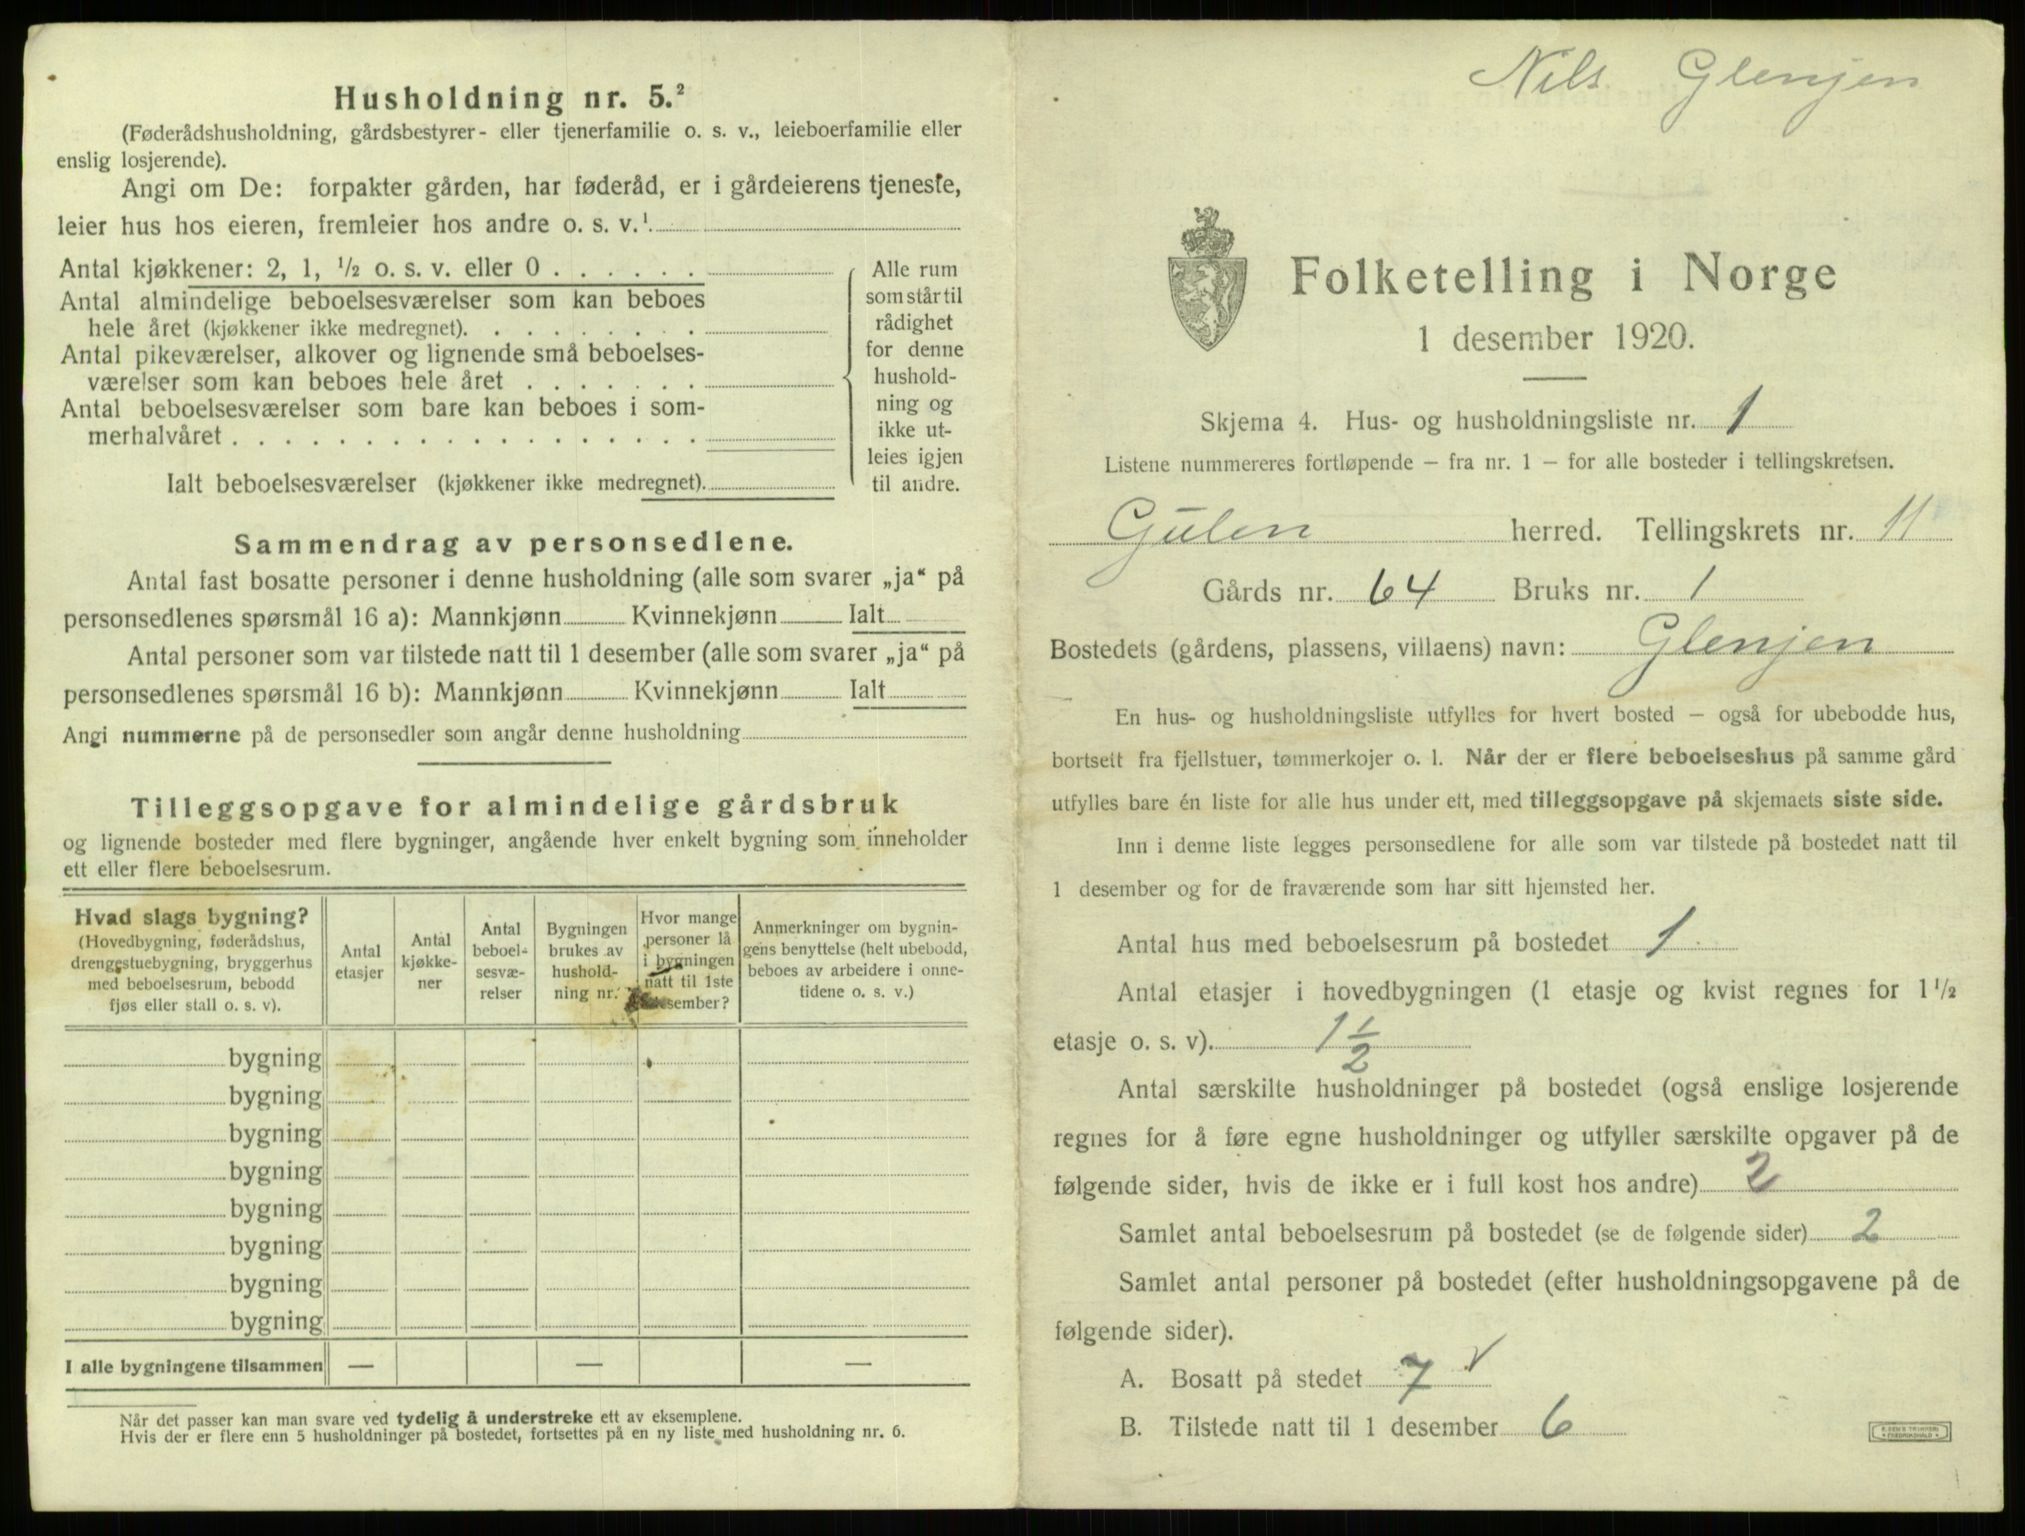 Husholdning nr. 5.²
(Føderådshusholdning, gårdsbestyrer- eller tjenerfamilie o. s. v., leieboerfamilie eller
enslig losjerende).
Angi om De: forpakter gården, har føderåd, er i gårdeierens tjeneste,
leier hus hos eieren, fremleier hos andre o. s. v.¹
Antal kjøkkener: 2, 1, ½ o. s. v. eller 0 . . . . . .
Antal almindelige beboelsesværelser som kan beboes
hele året (kjøkkener ikke medregnet). . . . . . . . .
Antal pikeværelser, alkover og lignende små beboelses-
værelser som kan beboes hele året . . . . . . .
Antal beboelsesværelser som bare kan beboes i som-
merhalvåret . . . . . . . . . . . . . . . . . .
Ialt beboelsesværelser (kjøkkener ikke medregnet).
Alle rum
som står til
rådighet
for denne
hushold-
ning og
ikke ut-
leies igjen
til andre.
Sammendrag av personsedlene.
Antal fast bosatte personer i denne husholdning (alle som svarer „ja“ på
personsedlenes spørsmål 16 a): Mannkjønn Kvinnekjønn Ialt
Antal personer som var tilstede natt til 1 desember (alle som svarer „ja“ på
personsedlenes spørsmål 16 b): Mannkjønn Kvinnekjønn Ialt
Angi nummerne på de personsedler som angår denne husholdning
Tilleggsopgave for almindelige gårdsbruk
og lignende bosteder med flere bygninger, angående hver enkelt bygning som inneholder
ett eller flere beboelsesrum.
Hvad slags bygning?
(Hovedbygning, føderådshus,
drengestuebygning, bryggerhus
med beboelsesrum, bebodd
fjøs eller stall o. s. v).
Antal
etasjer
Antal
kjøkke-
ner
Antal
beboel-
sesvæ-
relser
Bygningen
brukes av
hushold-
ning nr.
Hvor mange
personer lå
i bygningen
natt til 1ste
desember?
Anmerkninger om bygnin-
gens benyttelse (helt ubebodd,
beboes av arbeidere i onne-
tidene o. s. v.)
bygning
bygning
bygning
bygning
bygning
bygning
bygning
bygning
I alle bygningene tilsammen — — —
Når det passer kan man svare ved tydelig å understreke ett av eksemplene.
Hvis der er flere enn 5 husholdninger på bostedet, fortsettes på en ny liste med husholdning nr. 6.
Nils Glenjen
Folketelling i Norge
1 desember 1920.
Skjema 4. Hus- og husholdningsliste nr. 1
Listene nummereres fortløpende – fra nr. 1 – for alle bosteder i tellingskretsen.
Gulen herred. Tellingskrets nr. 11
Gårds nr. 64 Bruks nr. 1
Bostedets (gårdens, plassens, villaens) navn: Glenjen
En hus- og husholdningsliste utfylles for hvert bosted – også for ubebodde hus,
bortsett fra fjellstuer, tømmerkojer o. l. Når der er flere beboelseshus på samme gård
utfylles bare én liste for alle hus under ett, med tilleggsopgave på skjemaets siste side.
Inn i denne liste legges personsedlene for alle som var tilstede på bostedet natt til
1 desember og for de fraværende som har sitt hjemsted her.
Antal hus med beboelsesrum på bostedet 1
Antal etasjer i hovedbygningen (1 etasje og kvist regnes for 1½
etasje o. s. v). 1½
Antal særskilte husholdninger på bostedet (også enslige losjerende
regnes for å føre egne husholdninger og utfyller særskilte opgaver på de
følgende sider, hvis de ikke er i full kost hos andre) 2
Samlet antal beboelsesrum på bostedet (se de følgende sider) 2
Samlet antal personer på bostedet (efter husholdningsopgavene på de
følgende sider).
A. Bosatt på stedet 7 √
B. Tilstede natt til 1 desember 6